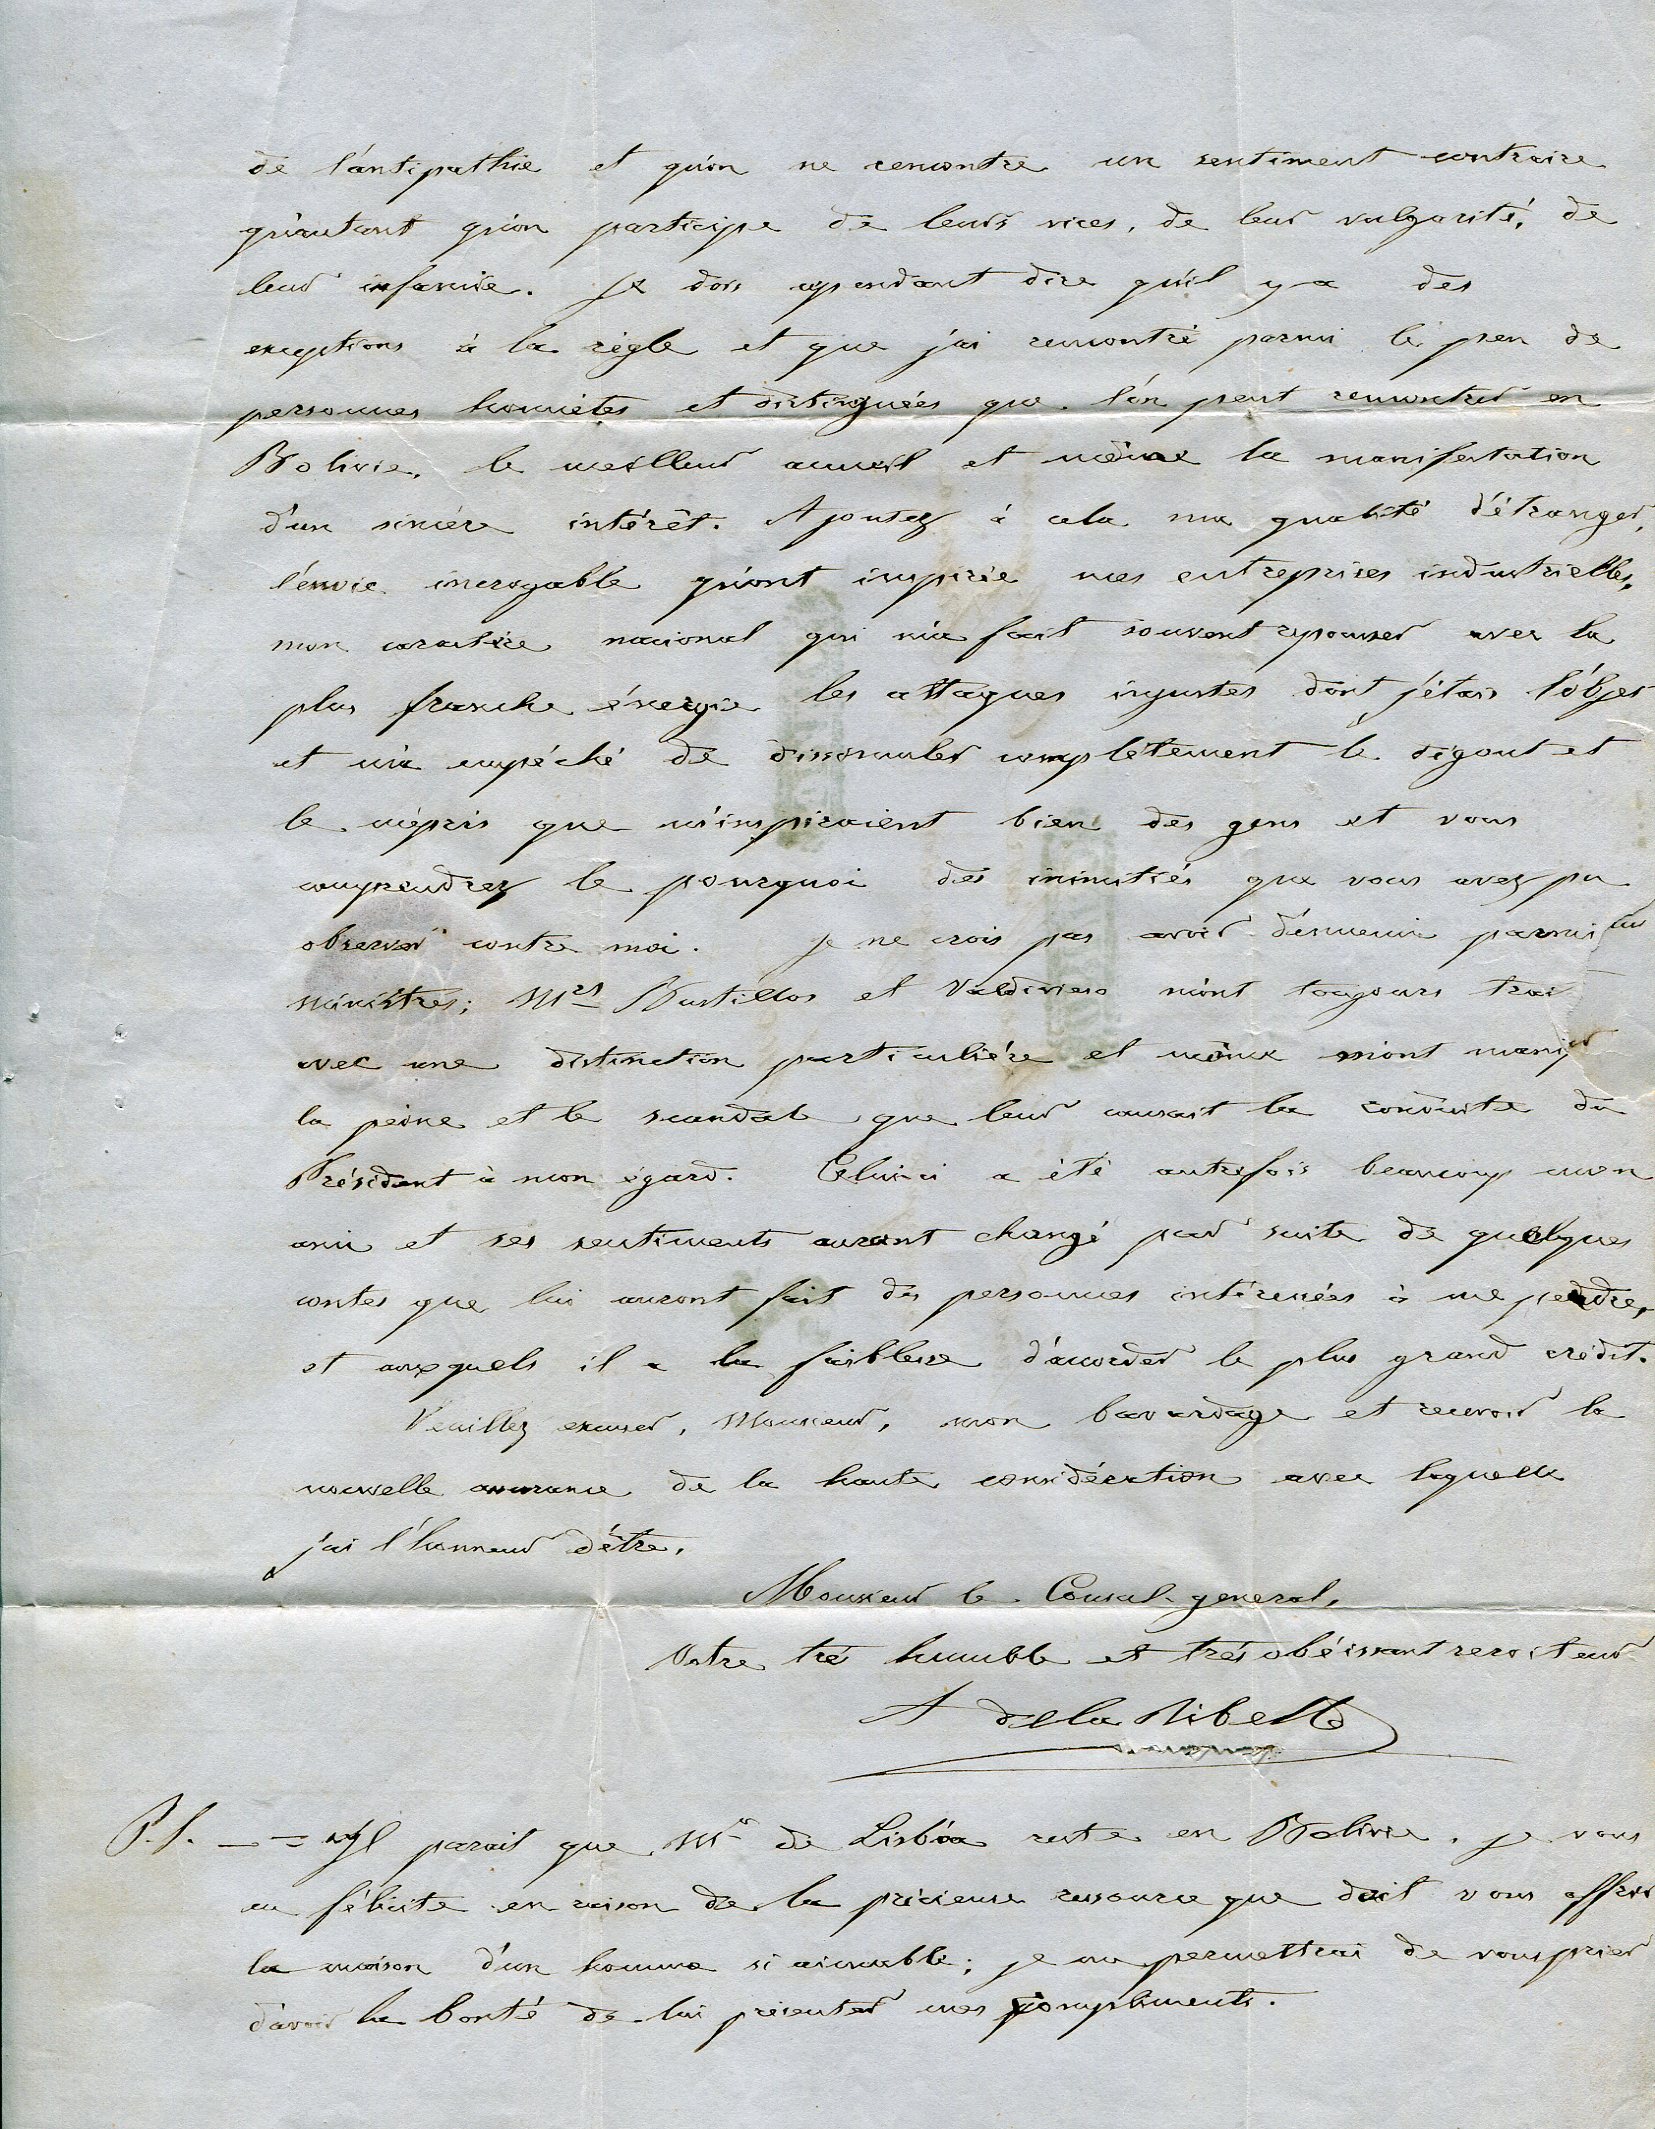 de l'antipathie et qu'on ne rencontre un sentiment contraire
qu'autant qu'on participe de leurs vices, de leur vulgarité, de
leur infamie. Je dois cependant dire qu'il y a des
exceptions à la règle et que j'ai rencontré parmi le peu de
personnes honnêtes et distinguées que l'on peut rencontrer en
Bolivie, le meilleur accueil et même la manifestation
d'un sincère intérêt. Ajoutez à cela ma qualité d'étranger,
l'envie incroyable qu'ont inspirée mes entreprises industrielles,
mon caractère nacional qui m'a fait souvent repousser avec la
plus franche énergie les attaques injustes dont j'étais l'objet
et m'a empéché de dissimuler complétement le dégout et
le mépris que m'inspiraient bien des gens et vous
comprendrez le pourquoi des inimitiés que vous avez pu
observer contre moi. Je ne crois pas avoir d'ennemi parmi
ministres; Mrs Bustillos et Valdivieso m'ont toujours trai
avec une distinction particulière et même m'ont manif
la peine et le scandale que leur causait la conduite du
Président à mon égard. Celui-ci a été autrefois beaucoup mon
ami et ses sentiments auront changé par suite de quelques
contes que lui auront fait des personnes intéressées à me perdre,
et auxquels il a la faiblesse d'accorder le plus grand crédit.
Veuillez excuser, Monsieur, mon bavardage et recevoir la
nouvelle assurance de la haute considération avec laquelle
j'ai l'honneur d'être,
Monsieur le Consul general,
Votre très humble et très obéissant serviteur
A de la Ribette
P.S. — = Il parait que Mr de Lisbóa reste en Bolivie. je vous
en félicite en raison de la précieuse ressource que doit vous offrir
la maison d'un homme si aimable; je me permettrai de vous prier
d'avoir la bonté de lui présenter mes compliments.